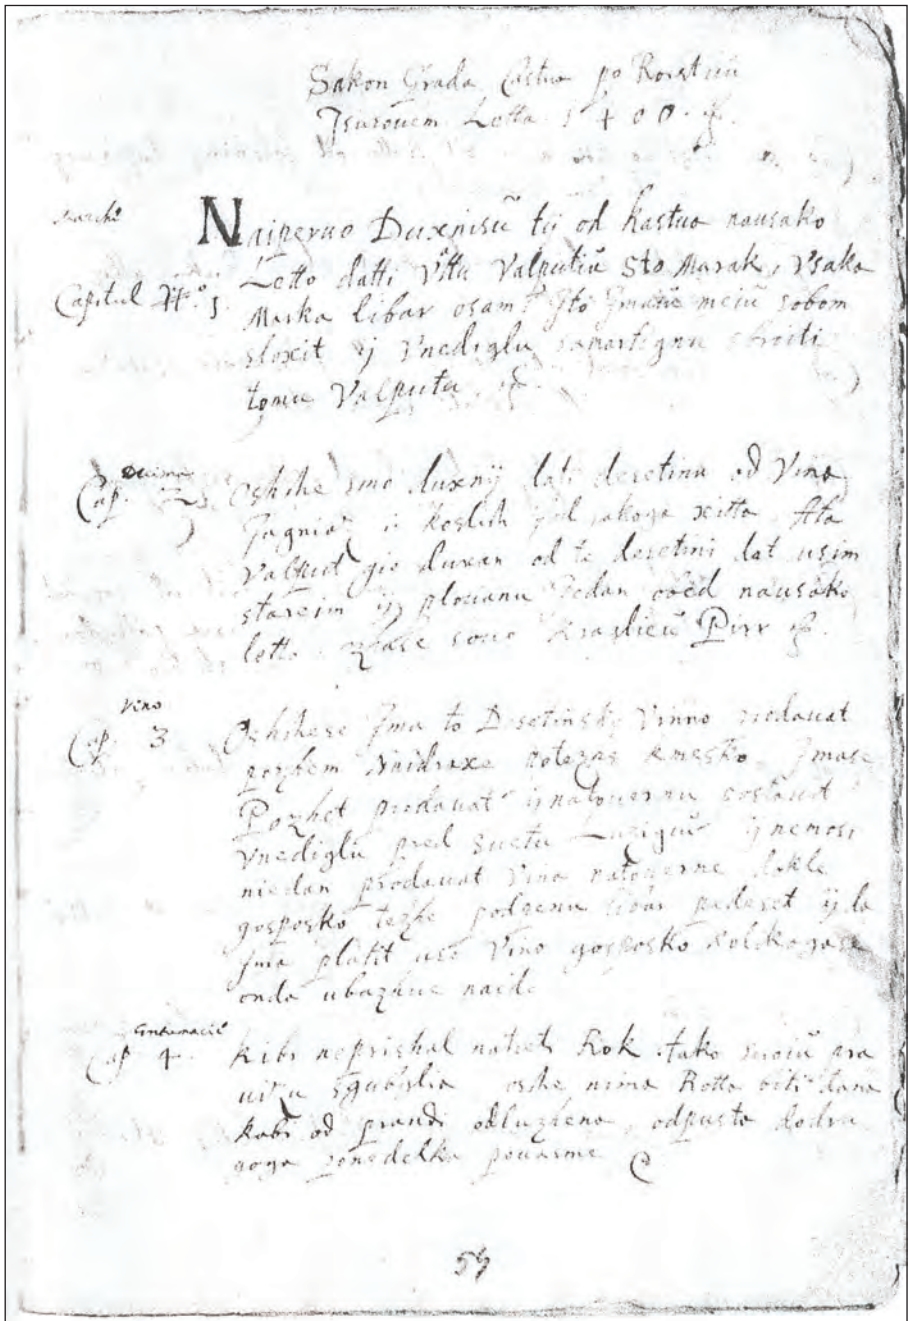 Sakon Grada Castua po Roistuu
Isusouem Letta 1400.
Marche
Naiperuo Duxnisu tij od Kastua nausako
Capitul No 1.
Letto datti Vttu Valputiu Sto Marak, Vsaka
Marka libar osam Sto Imaiu meiu sobom
sloxit ij Vnediglu samartignu sbroiti
tomu Valputu
Decima
Cap. 2
Oshche smo duxnij dati desetinu od Vina
Jagniaz ij koslich od sakoga xitta Ata
Valput gie duxan od te desetini dat usim
stareim ij plouanu Jedan obed nausako
letto Pirr
Vino
Cap 3
Oshchese Ima to Desetinsko Vinno prodauat
pozhem Naidraxe potezae kmesko. Imase
Pozhet prodauat ij natouernu postauit
Vnediglu pred Suetu Luzigiu ij nemosi
niedan prodauat Vina natouerne dokle
gosposko tezhe podzenu libar pedeset ij da
Ima platit uso Vino gosposko kolikogase
onda ubazhue naide
Contumacia
Cap 4.
Kibi neprishal natreti Rok tako suoiu pra
uitu sgubiglia oshe nima Rotta biti dana
kabi od praudi odluzhena, odpusta dodru
goga ponedelka pouasme
59